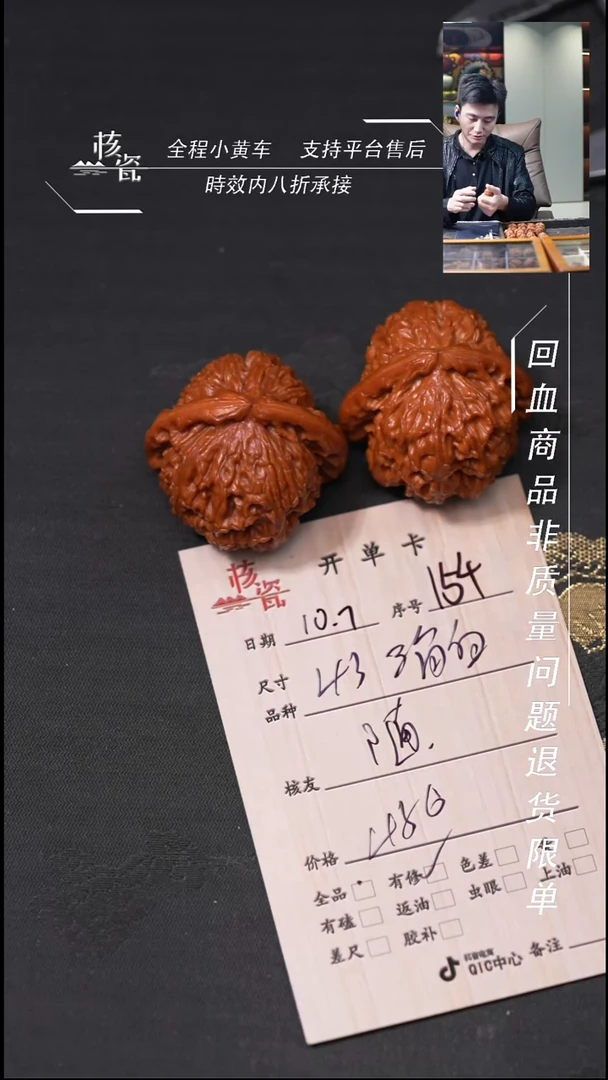 核瓷
全程小黄车 支持平台售后
時效内八折承接
回血商品非质量问题退货限单
核瓷
开单卡
日期 10.7 序号 154
尺寸 43
品种
核友 随
价格 480
全品 有修 色差
有磕 返油 虫眼 上油
差尺 胶补
抖音电商
QIC中心 备注